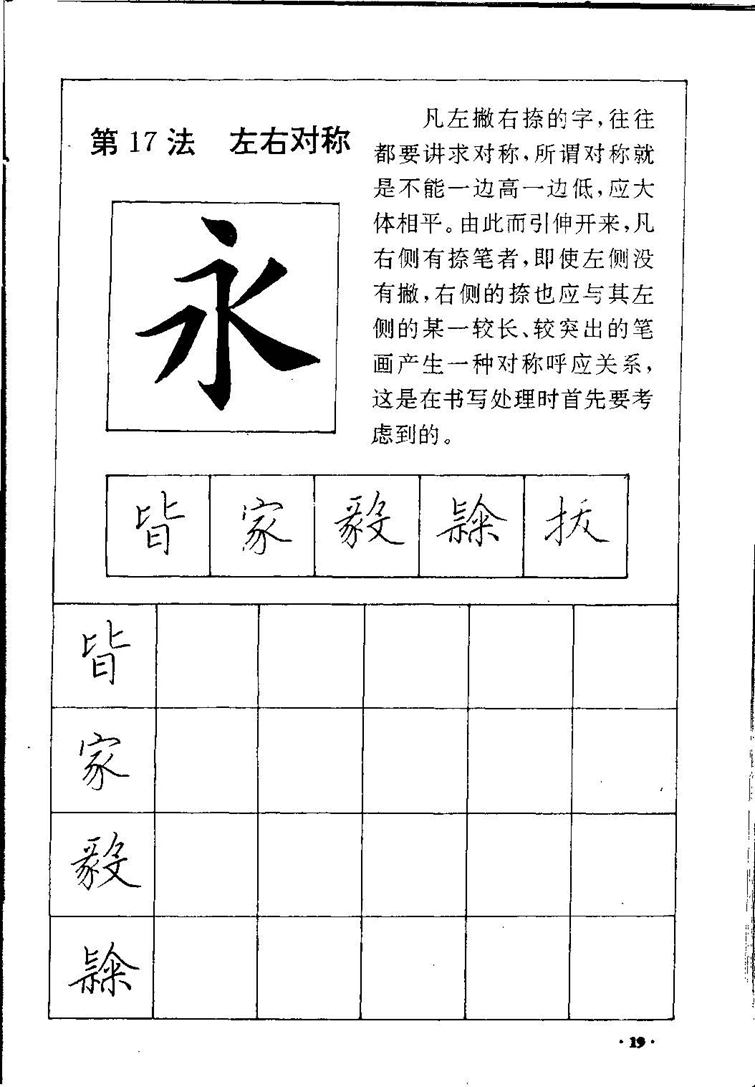 第17法 左右对称
凡左撇右捺的字，往往
都要讲求对称，所谓对称就
是不能一边高一边低，应大
体相平。由此而引伸开来，凡
右侧有捺笔者，即使左侧没
有撇，右侧的捺也应与其左
侧的某一较长、较突出的笔
画产生一种对称呼应关系，
这是在书写处理时首先要考
虑到的。
永
皆 家 毅 拔
皆
家
毅
·19·